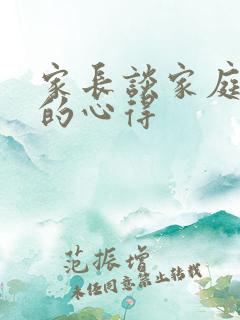 家长谈家庭
的心得
范振增
未经同意禁止转载